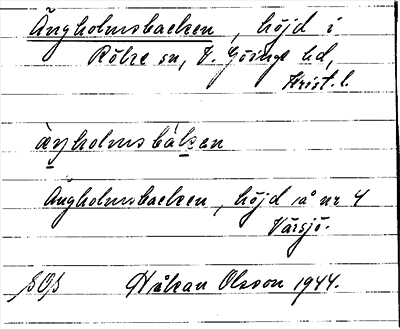 Ängholmsbacken, höjd i
Röke sn, V. Göinge hd,
Krist. l.
äŋholmsbàkən
Ängholmsbacken, höjd på nr 4
Värsjö.
SOS Håkan Olsson 1944.